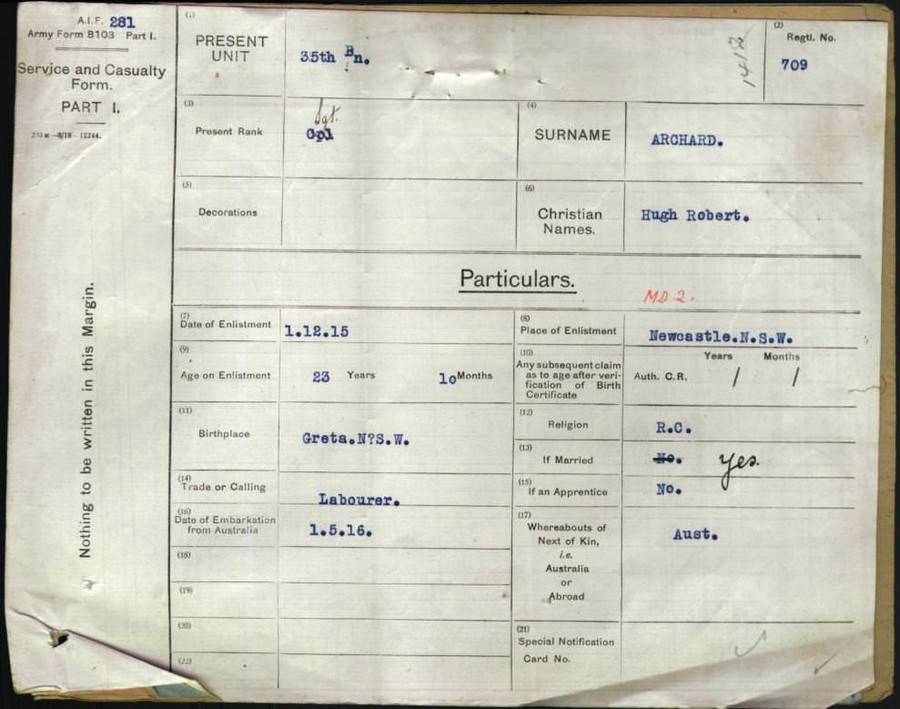 A.I.F. 281
Army Form B103 Part I.
Service and Casualty
Form.
PART I.
Nothing to be written in this Margin.
(1)
PRESENT
UNIT
35th Bn.
1412
(2)
Regtl. No.
709
(3)
Present Rank
Cpl
Sgt.
(4)
SURNAME
ARCHARD.
(5)
Decorations
(6)
Christian
Names.
Hugh Robert.
Particulars.
MD 2.
(7)
Date of Enlistment
1.12.15
(8)
Place of Enlistment
Newcastle.N.S.W.
(9)
Age on Enlistment
23 Years 10 Months
(10)
Any subsequent claim
as to age after veri-
fication of Birth
Certificate
Years Months
Auth. C.R. / /
(11)
Birthplace
Greta.N?S.W.
(12)
Religion
R.C.
(13)
If Married
No. yes.
(14)
Trade or Calling
Labourer.
(15)
If an Apprentice
No.
(16)
Date of Embarkation
from Australia
1.5.16.
(17)
Whereabouts of
Next of Kin,
i.e.
Australia
or
Abroad
Aust.
(18)
(19)
(20)
(21)
Special Notification
Card No.
(22)